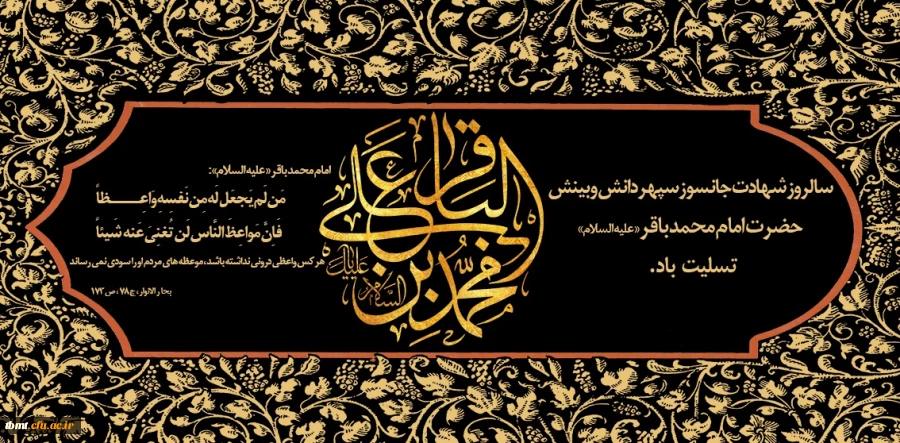 سالروز شهادت جانسوز سپهر دانش و بینش
حضرت امام محمد باقر «علیه السلام»
تسلیت باد.
محمد بن علی الباقر
علیه السلام
امام محمد باقر «علیه السلام»:
مَن لَم يَجعَل لَه مِن نَفسِهِ واعِـظاً
فَانَّ مَواعِظَ النَّاسِ لَن تُغنِیَ عَنه شَیئاً
هر کس واعظی درونی نداشته باشد، موعظه های مردم او را سودی نمی رساند
بحار الانوار، ج ۷۸، ص ۱۷۳
ibmt.cfu.ac.ir